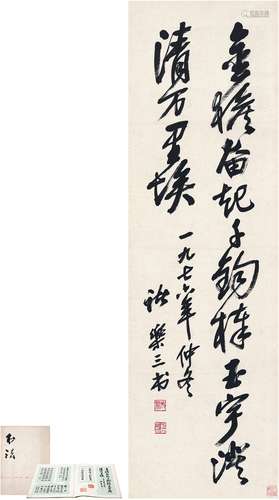 金猴奋起千钧棒玉宇澄
清万里埃
一九七六年仲冬
诸乐三书